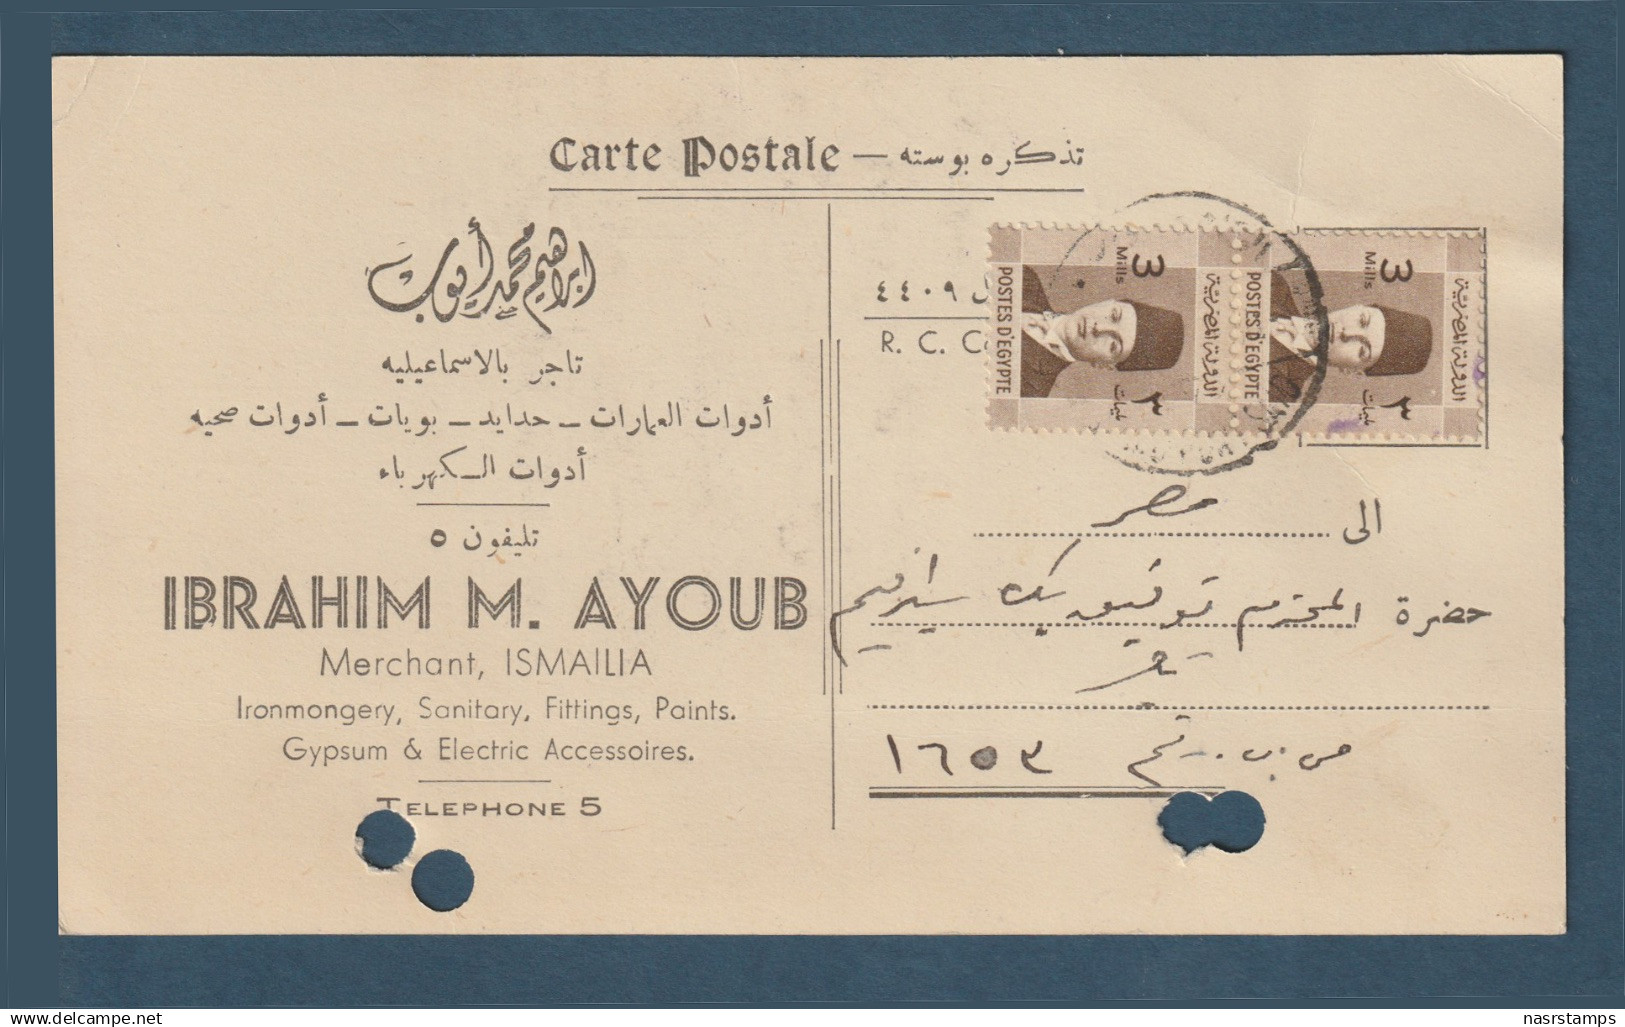 Carte Postale — تذكره بوسته
ابراهيم محمد أيوب
تاجر بالاسماعيليه
أدوات العمارات - حدايد - بويات - أدوات صحيه
أدوات الكهرباء
تليفون ٥
IBRAHIM M. AYOUB
Merchant, ISMAILIA
Ironmongery, Sanitary, Fittings, Paints.
Gypsum & Electric Accessoires.
TELEPHONE 5
٤٤٠٩
R. C.
3 Mills
POSTES D'EGYPTE
الدولة المصرية
٣ مليمات
3 Mills
POSTES D'EGYPTE
الدولة المصرية
٣ مليمات
الى مصر
حضرة المحترم توفيق بك
ص.ب. رقم ١٦٥٣
Delcampe.net
nasrstamps